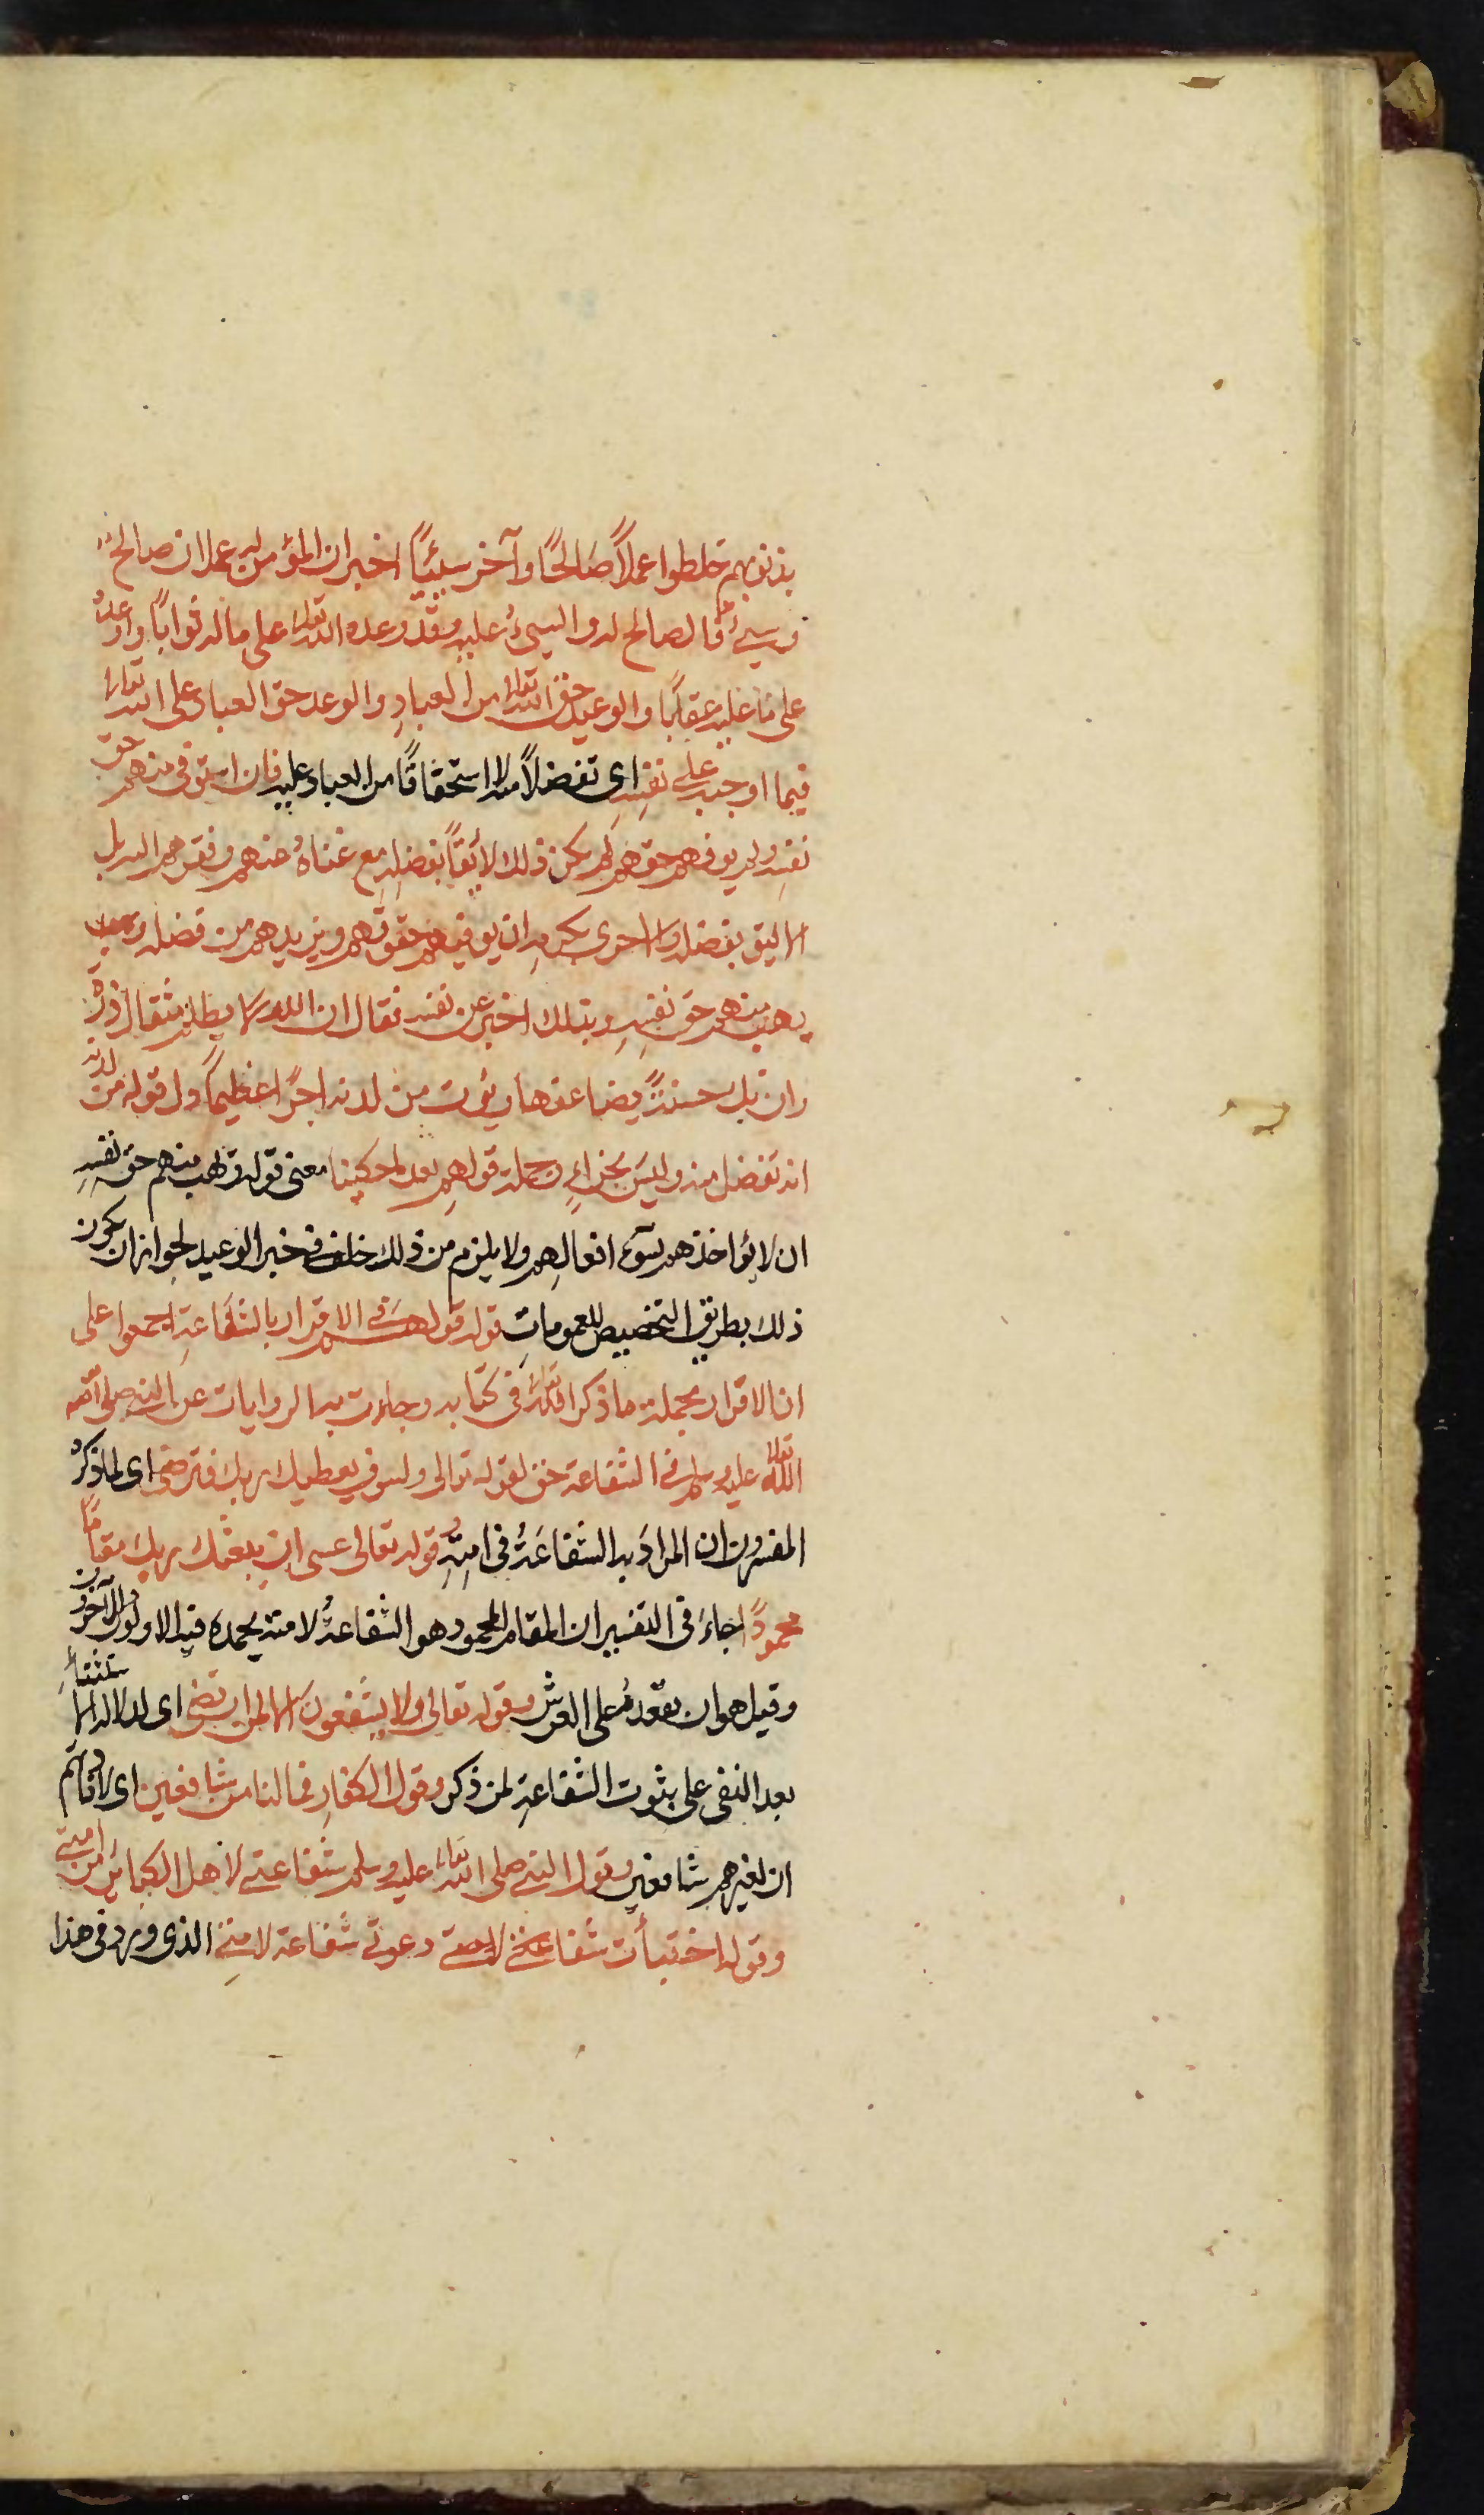 بذنوبهم خلطوا عملاً صَالحًا وآخر سيئًا اخبر ان المؤمن له عملان صالح
وسيئ فالصالح له والسيئُ عليه وقد وعده الله تعالى على ماله ثواباً واوعدهُ
على مَا عليه عقاباً والوعيد حق الله تعالى من العبادِ والوعد حق العباد على الله تعالى
فيما اوجبه على نفسِه اى تفضلاً منه لا استحقاقًا من العباد عليه فان استوفى منهم حق
نفسِه ولم يوفهم حقهم لم يكن ذلك لائقاً بفضلِه مع غناهُ عنهم وفقرهم اليه بل
الاليق بفضله والاحرى بكرمِه ان يوفيهم حقوقهم ويزيدهم من فضله و
يهب منهم حق نفسِهِ وبذلك اخبر عن نفسه فقال ان الله لا يظلم مثقال ذرّة
وان تك حسنةً يضاعفها ويؤت من لدنه اجرًا عظيماً ودل قوله من لدنه
انه تفضل منه وليسَ بجزاءٍ وجملة قولهم بعد لمحكينا معنى قوله ويهب منهم حق نفسِهِ
ان لا يؤاخذهم بسوء افعالِهم ولا يلزم من ذلك خلف فى خبر الوعيد لجواز ان يكون
ذلك بطريق التخصيص للعموماتِ قوله قولهم فى الاقرار بالشفَاعةِ اجمعوا على
ان الاقرار بجملة ما ذكر الله تعالى فى كتابه وجاءت به الروايات عن النبى صلى
الله تعالى عليه وسلم فى الشفاعة حق لقوله تعالى ولسوف يعطيك ربك فترضى اى لما ذكرهُ
المفسرون ان المرادَ به الشفاعَةُ فى امتِهِ وقوله تعالى عسى ان يبعثك ربك مقاماً
محموداً جاءَ فى التفسير ان المقام المحمود هو الشفاعةُ لامته يحمده فيه الاولون والآخرون
وقيل هو ان يقعدهُ على العرش وقوله تعالى ولا يشفعون الا لمن ارتضى اى لدلالة الاستثناءِ
بعد النفى على بثوت الشفاعةِ لمن ذكر وقول الكفارِ فما لنا من شافعين اى لافادتهم
ان لغيرهم شافعين وقول النبى صلى الله تعالى عليه وسلم شفاعتى لاهل الكبائر من امتى
وقوله اختبأت شفاعتى دعوتى شفاعة لامتى الذى ورد فى هذا